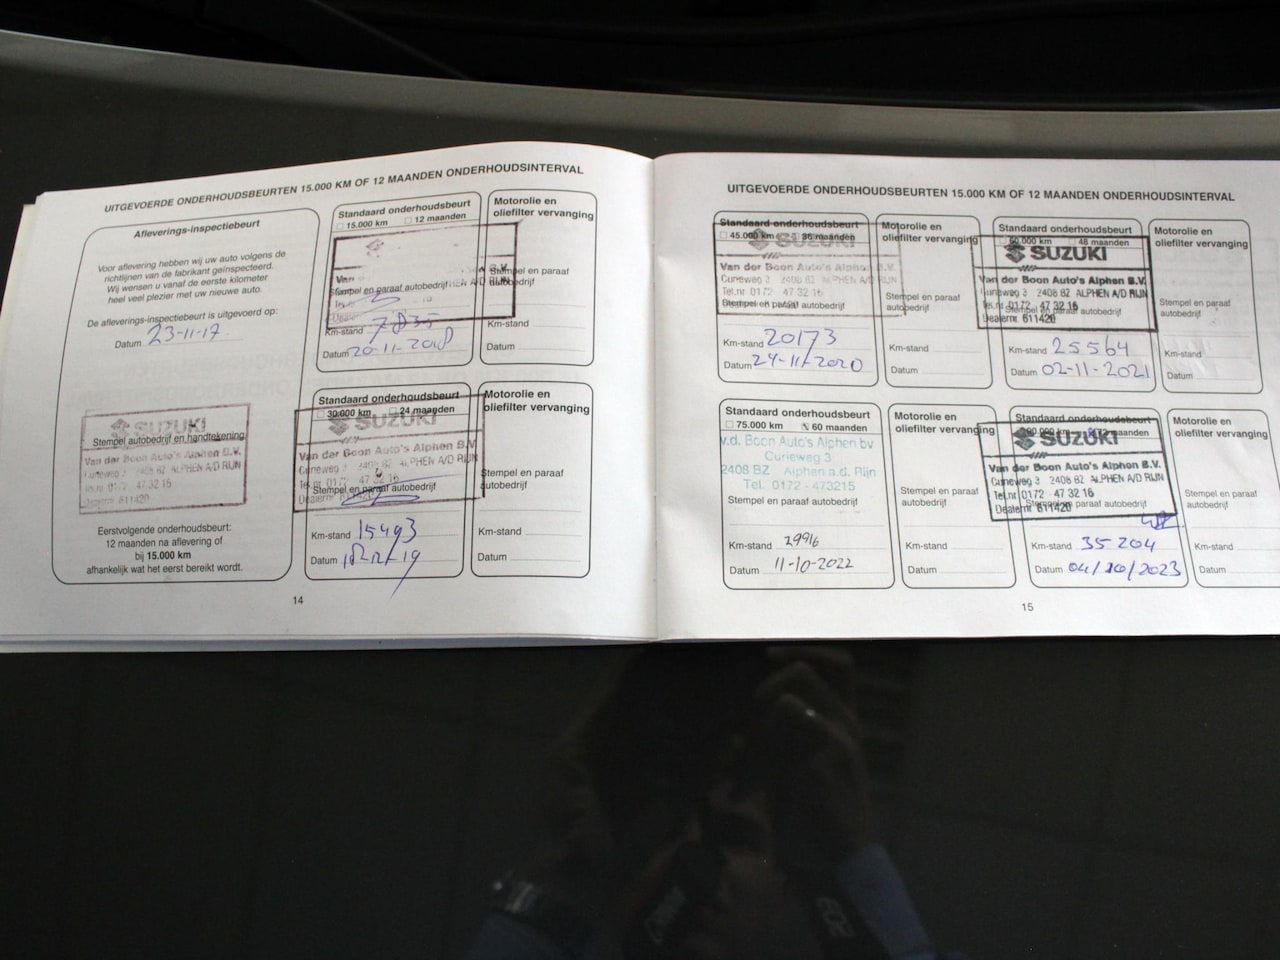 UITGEVOERDE ONDERHOUDSBEURTEN 15.000 KM OF 12 MAANDEN ONDERHOUDSINTERVAL
Afleverings-inspectiebeurt
Voor aflevering hebben wij uw auto volgens de
richtlijnen van de fabrikant geïnspecteerd.
Wij wensen u vanaf de eerste kilometer
heel veel plezier met uw nieuwe auto.
De afleverings-inspectiebeurt is uitgevoerd op:
Datum 23-11-17
SUZUKI
Stempel autobedrijf en handtekening
Van der Boon Auto's Alphen B.V.
Curieweg 3 2408 BZ ALPHEN A/D RIJN
Tel.nr. 0172 - 47 32 16
Dealernr. 611420
Eerstvolgende onderhoudsbeurt:
12 maanden na aflevering of
bij 15.000 km
afhankelijk wat het eerst bereikt wordt.
Standaard onderhoudsbeurt
15.000 km 12 maanden
Van
Stempel en paraaf autobedrijf
Km-stand 7835
Datum 20-11-2018
Motorolie en
oliefilter vervanging
Stempel en paraaf
autobedrijf
Km-stand
Datum
Standaard onderhoudsbeurt
30.000 km 24 maanden
SUZUKI
Van der Boon Auto's Alphen B.V.
Curieweg 3 2408 BZ ALPHEN A/D RIJN
Tel.nr. 0172 - 47 32 16
Stempel en paraaf autobedrijf
Dealernr.
Km-stand 15493
Datum
Motorolie en
oliefilter vervanging
Stempel en paraaf
autobedrijf
Km-stand
Datum
14
UITGEVOERDE ONDERHOUDSBEURTEN 15.000 KM OF 12 MAANDEN ONDERHOUDSINTERVAL
Standaard onderhoudsbeurt
45.000 km 36 maanden
SUZUKI
Van der Boon Auto's Alphen B.V.
Curieweg 3 2408 BZ ALPHEN A/D RIJN
Tel.nr. 0172 - 47 32 16
Stempel en paraaf autobedrijf
Km-stand 20173
Datum 24-11-2020
Motorolie en
oliefilter vervanging
Stempel en paraaf
autobedrijf
Km-stand
Datum
Standaard onderhoudsbeurt
60.000 km 48 maanden
SUZUKI
Van der Boon Auto's Alphen B.V.
Curieweg 3 2408 BZ ALPHEN A/D RIJN
Tel.nr. 0172 - 47 32 16
Stempel en paraaf autobedrijf
Dealernr. 611420
Km-stand 25564
Datum 02-11-2021
Motorolie en
oliefilter vervanging
Stempel en paraaf
autobedrijf
Km-stand
Datum
Standaard onderhoudsbeurt
75.000 km 60 maanden
v.d. Boon Auto's Alphen bv
Curieweg 3
2408 BZ Alphen a.d. Rijn
Tel. 0172 - 473215
Stempel en paraaf autobedrijf
Km-stand 29916
Datum 11-10-2022
Motorolie en
oliefilter vervanging
Stempel en paraaf
autobedrijf
Km-stand
Datum
Standaard onderhoudsbeurt
90.000 km 72 maanden
SUZUKI
Van der Boon Auto's Alphen B.V.
Curieweg 3 2408 BZ ALPHEN A/D RIJN
Tel.nr. 0172 - 47 32 16
Stempel en paraaf autobedrijf
Dealernr. 611420
Km-stand 35204
Datum 04/10/2023
Motorolie en
oliefilter vervanging
Stempel en paraaf
autobedrijf
Km-stand
Datum
15